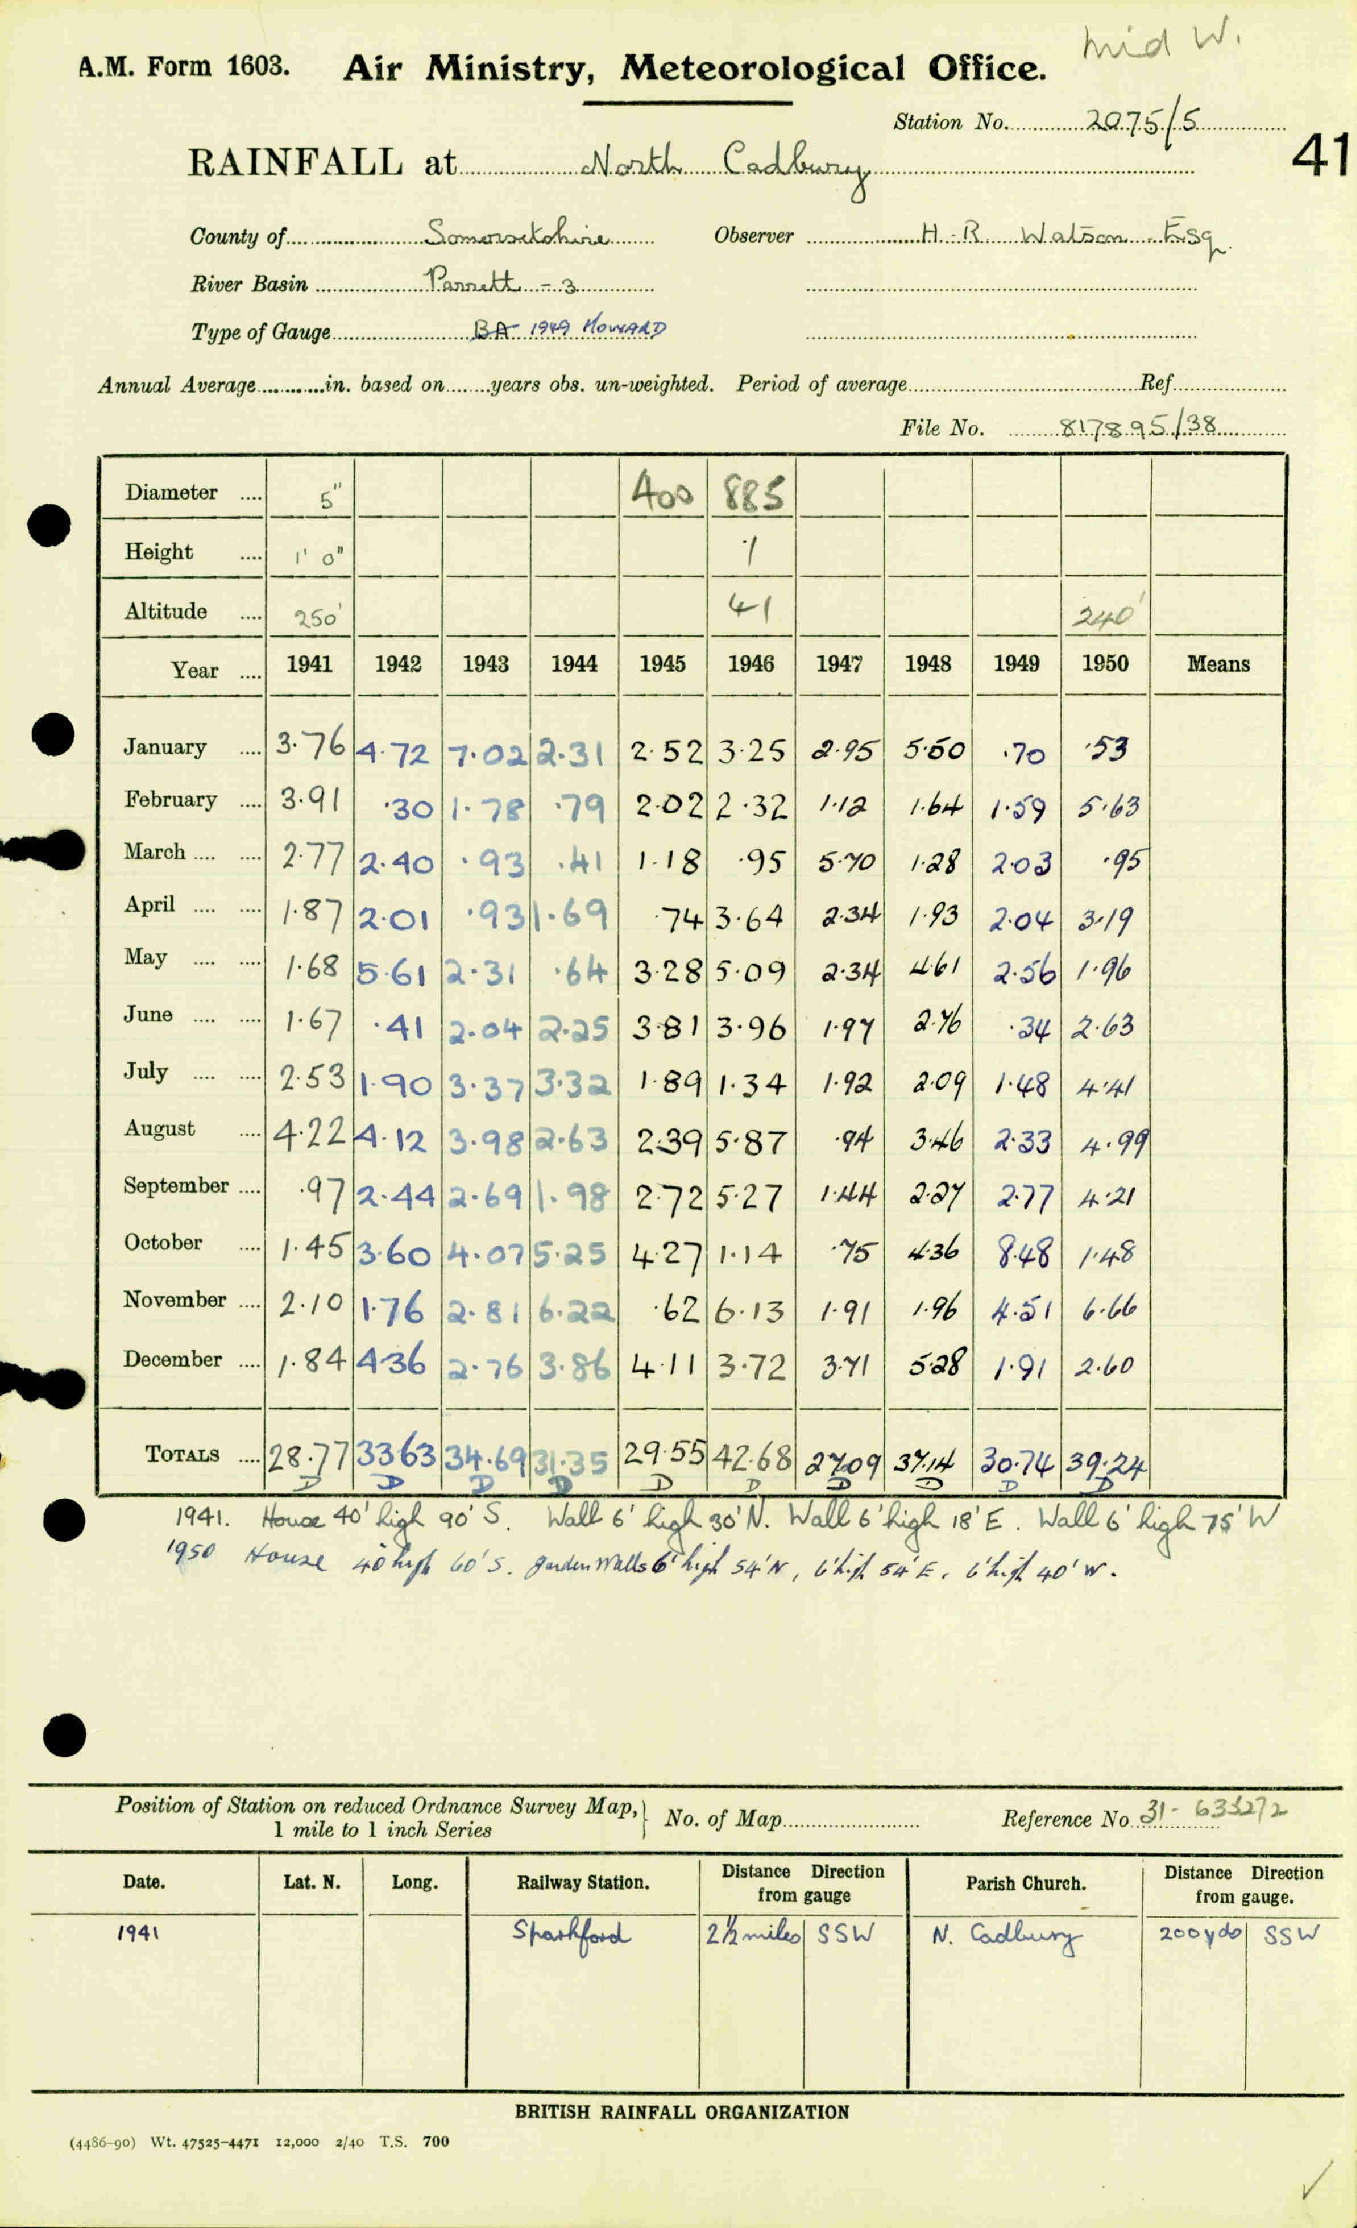 mid W.
A.M. Form 1603. Air Ministry, Meteorological Office.
Station No. 2075/5
41
RAINFALL at North Cadbury
County of Somersetshire Observer H. R. Watson Esq.
River Basin Parrett - 3
Type of Gauge BA 1949 HOWARD
Annual Average in. based on years obs. un-weighted. Period of average Ref.
File No. 817895/38
Diameter .... 5" 400 885
Height .... 1' 0" 1
Altitude .... 250' 41 240'
Year .... 1941 1942 1943 1944 1945 1946 1947 1948 1949 1950 Means
January .... 3.76 4.72 7.02 2.31 2.52 3.25 2.95 5.50 .70 .53
February .... 3.91 .30 1.78 .79 2.02 2.32 1.12 1.64 1.59 5.63
March .... .... 2.77 2.40 .93 .41 1.18 .95 5.70 1.28 2.03 .95
April .... .... 1.87 2.01 .93 1.69 .74 3.64 2.34 1.93 2.04 3.19
May .... .... 1.68 5.61 2.31 .64 3.28 5.09 2.34 4.61 2.56 1.96
June .... .... 1.67 .41 2.04 2.25 3.81 3.96 1.97 2.76 .34 2.63
July .... .... 2.53 1.90 3.37 3.32 1.89 1.34 1.92 2.09 1.48 4.41
August .... 4.22 4.12 3.98 2.63 2.39 5.87 .94 3.46 2.33 4.99
September .... .97 2.44 2.69 1.98 2.72 5.27 1.44 2.27 2.77 4.21
October .... 1.45 3.60 4.07 5.25 4.27 1.14 .75 4.36 8.48 1.48
November .... 2.10 1.76 2.81 6.22 .62 6.13 1.91 1.96 4.51 6.66
December .... 1.84 4.36 2.76 3.86 4.11 3.72 3.71 5.28 1.91 2.60
TOTALS .... 28.77 33.63 34.69 31.35 29.55 42.68 27.09 37.14 30.74 39.24
D D D D D D D D D D
1941. House 40' high 90' S. Wall 6' high 30' N. Wall 6' high 18' E. Wall 6' high 75' W
1950 House 40 high 60' S. garden Walls 6' high 54' N, 6' high 54' E, 6' high 40' W.
Position of Station on reduced Ordnance Survey Map, 1 mile to 1 inch Series } No. of Map Reference No. 31-
Date. Lat. N. Long. Railway Station. Distance Direction from gauge Parish Church. Distance Direction from gauge.
1941 Sparkford 2½ miles SSW N. Cadbury 200 yds SSW
BRITISH RAINFALL ORGANIZATION
(4486-90) Wt. 47525-4471 12,000 2/40 T.S. 700